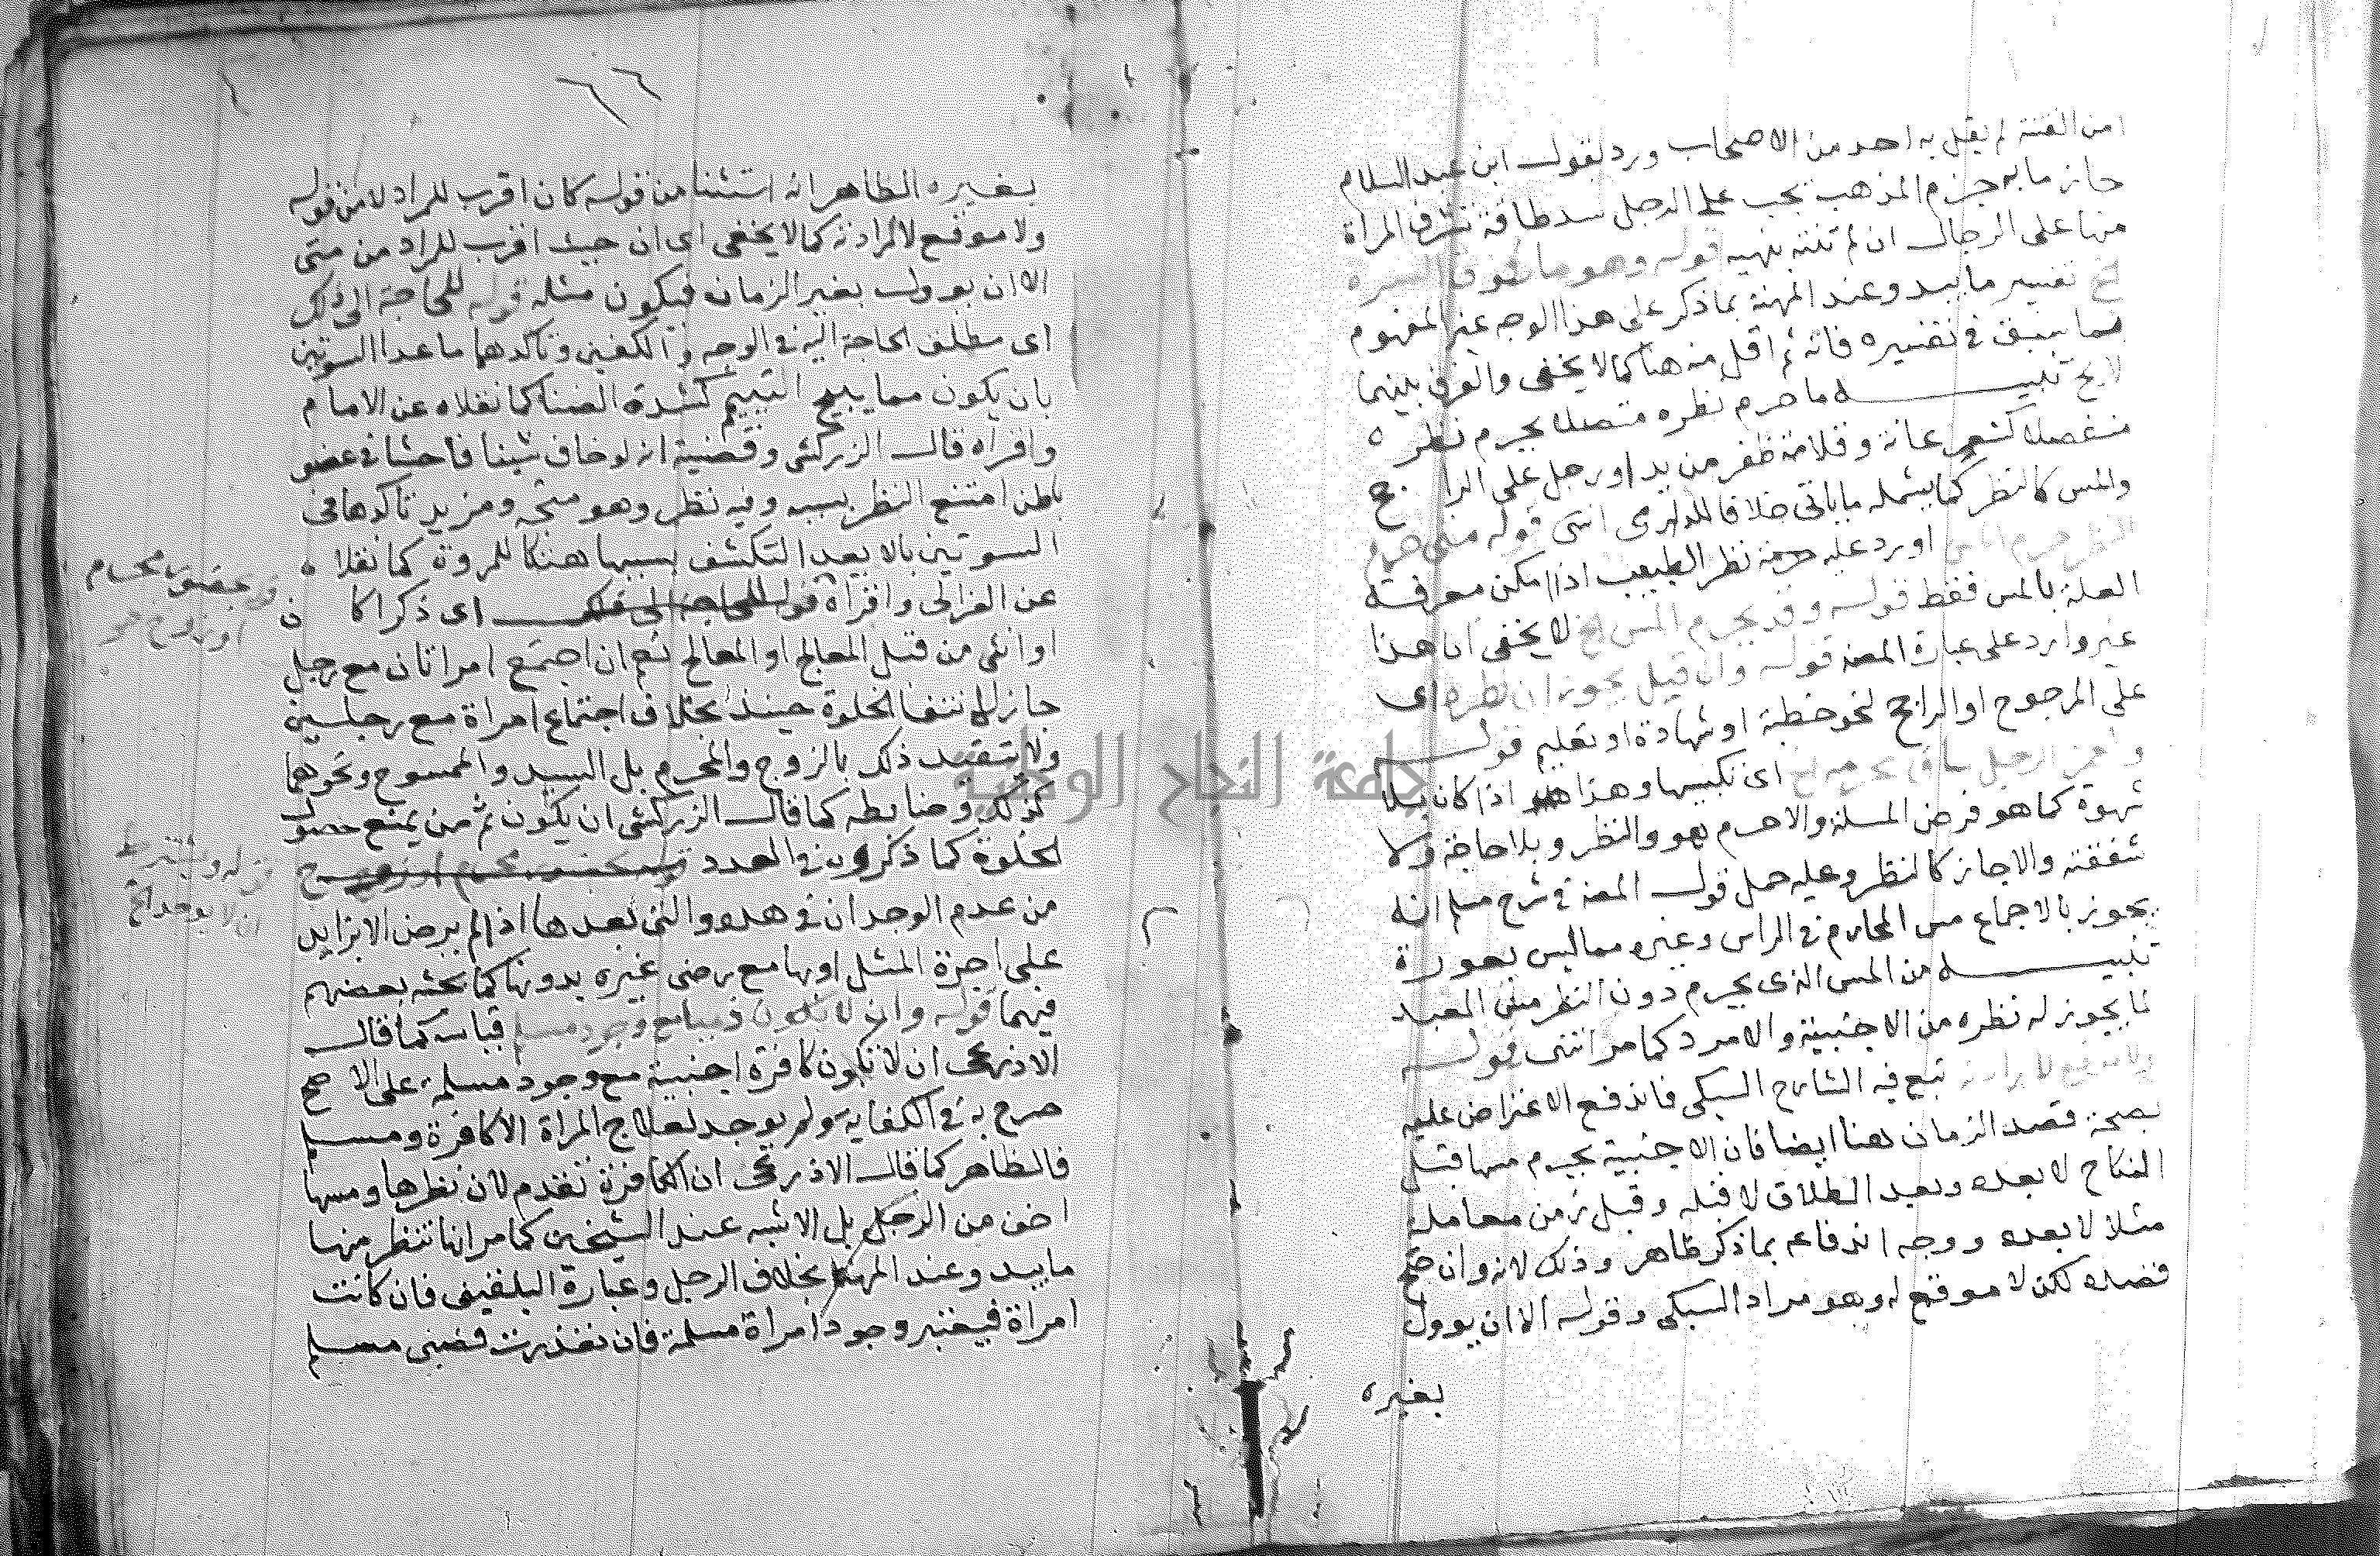 امن الفتنة لم يقل به احد من الاصحاب ورد بقول ابن عبد السلام
جازما به جزم المذهب يجب على الرجل سد طاقة تشرف المراة
منها على الرجال ان لم تنته بنهيه قوله وهو ما فوق السرة
الخ تفسير ما يبدو عند المهنة بما ذكر على هذا الوجه غير المفهوم
مما سبق في تفسيره فانه ثم اقل منه هنا كما لا يخفى والفرق بينهما
لايح تنبيه ما حرم نظره متصلا يحرم نظره
منفصلا كشعر عانة وقلامة ظفر من يد او رجل على الراجح
والمس كالنظر كما يشمله ما ياتي خلافا للدميرى انتهى قوله متى حرم
النظر حرم المس اورد عليه حرمة نظر الطبيب اذا امكن معرفة
العلة بالمس فقط قوله وقد يحرم المس الخ لا يخفى ان هذا
غير وارد على عبارة المصنف قوله وان قيل يجوز ان نظره اى
على المرجوح او الراجح لنحو خطبة او شهادة او تعليم قوله
اى تكبيسها وهذا اذا كان بلا
شهوة كما هو فرض المسلة والا حرم هو والنظر وبلا حاجة ولا
شفقة والا جاز كالنظر وعليه حمل قول المصنف في شرح مسلم انه
يجوز بالاجماع مس المحارم في الراس وغيره مما ليس بعورة
تنبيه من المس الذى يحرم دون النظر مس العبد
لما يجوز له نظره من الاجنبية والامرد كما مر انتهى قوله
ولا موقع لارادته تبع فيه الشارح السبكي فاندفع الاعتراض عليه
بصحة قصد الزمان هنا ايضا فان الاجنبية يحرم مسها قبل
النكاح لا بعده وبعد الطلاق لا قبله وقبل زمن معاملة
مثلا لا بعده ووجه اندفاعه بما ذكر ظاهر وذلك لانه وان صح
قصده لكن لا موقع له وهو مراد السبكي وقوله الا ان يوول
بغيره
٦٦
بغيره الظاهر انه استثنا من قوله كان اقرب للمراد لا من قوله
ولا موقع لارادته كما لا يخفى اى ان حيث اقرب للمراد من متى
الا ان يوول بغير الزمان فيكون مثله قوله للحاجة الى ذلك
اى مطلق الحاجة اليه في الوجه والكفين وتاكدها ما عدا السوتين
بان يكون مما يبيح التيمم كشدة الضنا كما نقلاه عن الامام
واقراه قال الزركشى وقضيته انه لو خاف شينا فاحشا في عضو
باطن امتنع النظر بسببه وفيه نظر وهو متجه ومزيد تاكدها في
السوتين بان لا يعد التكشف بسببها هتكا للمروة كما نقلاه
عن الغزالى واقراه اى ذكرا كان
او انثى من قبل المعالج او المعالج نعم ان اجتمع امراتان مع رجل
جاز لانتفا الخلوة حينئذ بخلاف اجتماع امراة مع رجلين
ولا يتقيد ذلك بالزوج والمحرم بل السيد والممسوح ونحوهما
كذلك وضابطه كما قال الزركشى ان يكون ثم من يمنع حصول
الخلوة كما ذكروه في العدد
من عدم الوجدان في هذه والتى بعدها اذا لم يرض الا بزايد
على اجرة المثل او بها مع رضى غيره بدونها كما بحثه بعضهم
فيهما قوله وان لا تكون ذميا مع وجود مسلم قياسه كما قال
الاذرعى ان لا تكون كافرة اجنبية مع وجود مسلمة على الاصح
صرح به في الكفاية ولو لم يوجد لعلاج المراة الا كافرة ومسلم
فالظاهر كما قال الاذرعى ان الكافرة تقدم لان نظرها ومسها
اخف من الرجل بل الاشبه عند الشيخين كما مر انها تنظر منها
ما يبدو عند المهنة بخلاف الرجل وعبارة البلقينى فان كانت
امراة فيعتبر وجود امراة مسلمة فان تعذرت فصبى مسلم
بحضور محرم
او زوج
قوله ويشترط
ان لا يوجد الخ
جامعة النجاح الوطنية